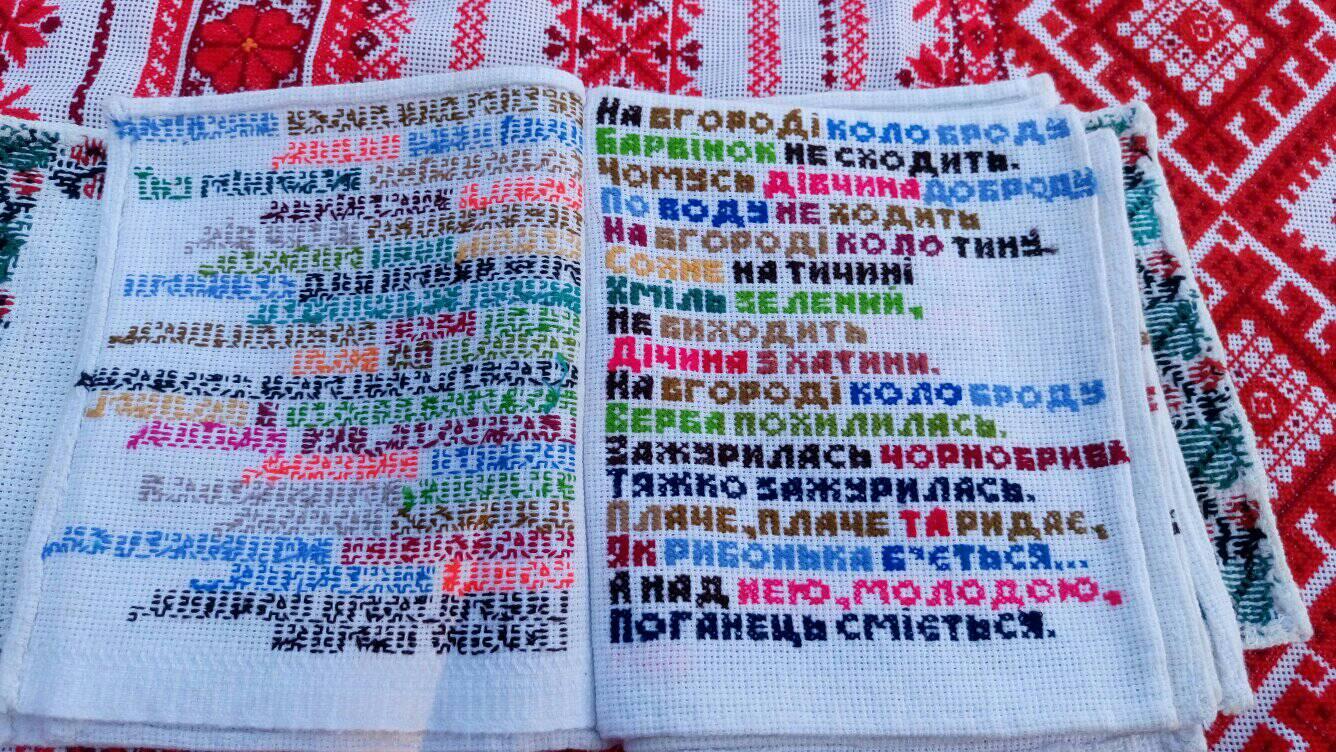 На вгороді коло броду
Барвінок не сходить.
Чомусь дівчина до броду
По воду не ходить
На вгороді коло тину
Сохне на тичині
Хміль зелений,
Не виходить
Дічина з хатини.
На вгороді коло броду
Верба похилилась.
Зажурилась чорнобрива
Тяжко зажурилась.
Плаче, плаче та ридає,
Як рибонька б'ється...
А над нею, молодою,
Поганець сміється.